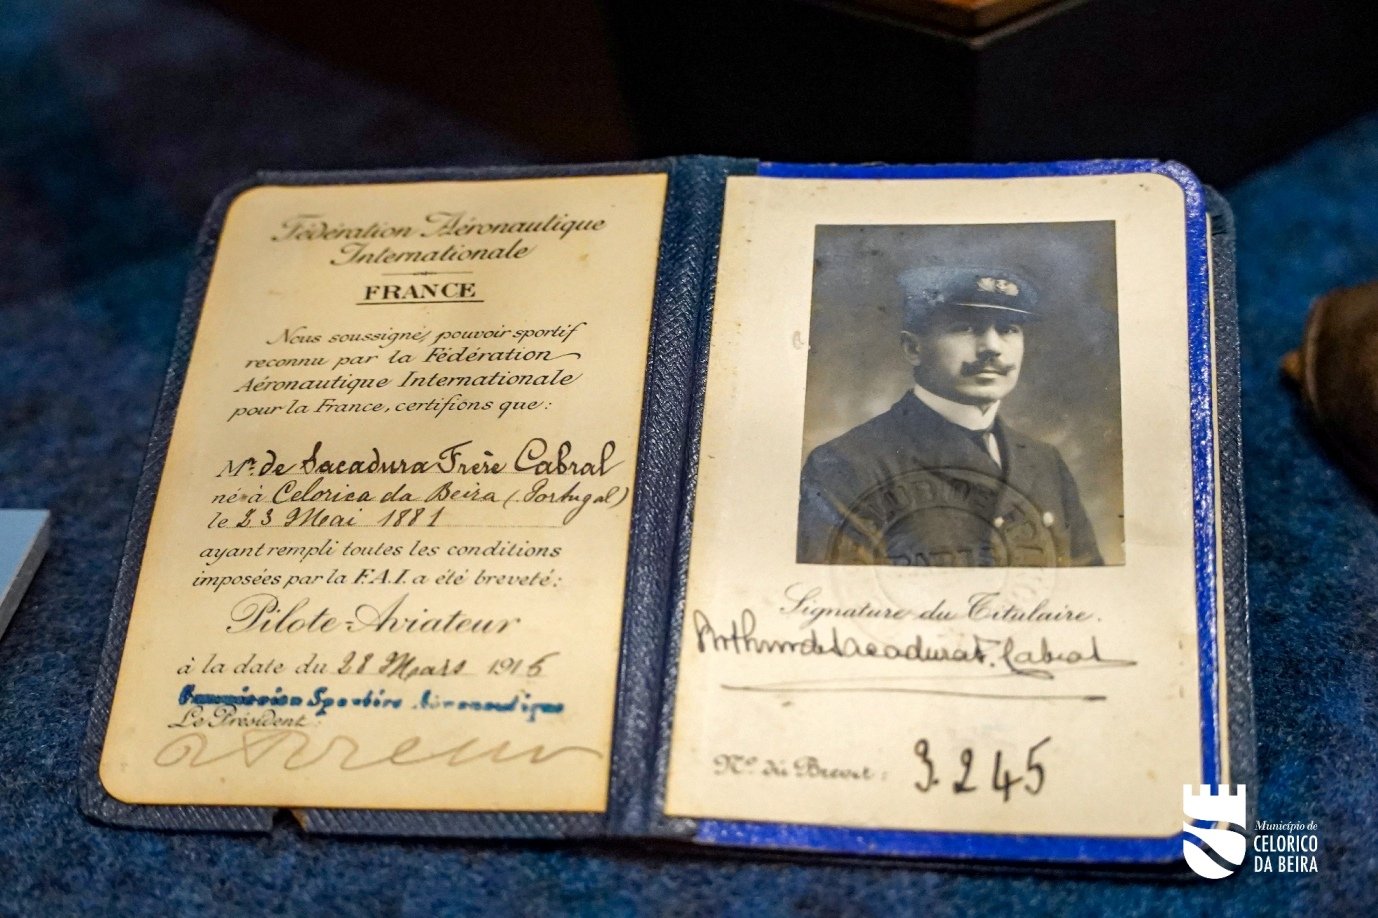 Fédération Aéronautique
Internationale
FRANCE
Nous soussigné, pouvoir sportif
reconnu par la Fédération
Aéronautique Internationale
pour la France, certifions que:
Mr. de Sacadura Freire Cabral
né à Celorica da Beira (Portugal)
le 23 Mai 1881
ayant rempli toutes les conditions
imposées par la F.A.I. a été breveté:
Pilote-Aviateur
à la date du 28 Mars 1916
Commission Sportive Aéronautique
Le Président:
PARIS
Signature du Titulaire.
Arthur de Sacadura F. Cabral
No. du Brevet: 3.245
Município de
CELORICO
DA BEIRA